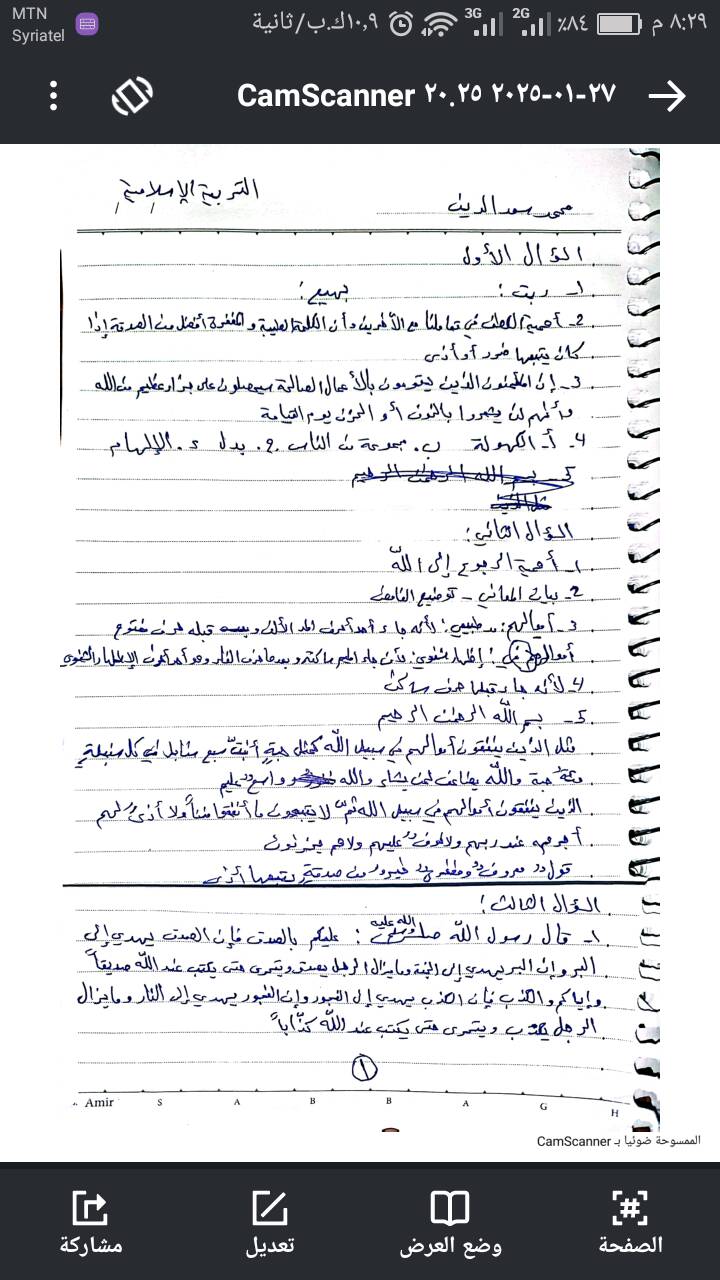 MTN
Syriatel
١٠,٩ك.ب/ثانية 3G 2G ٨٤٪ ٨:٢٩ م
CamScanner ٢٠.٢٥ ٢٠٢٥-٠١-٢٧
التربية الإسلامية
سعد الدين
السؤال الأول
1- ربت : بهيج :
2- أهمية في تعاملنا مع الآخرين وأن الكلمة الطيبة و أفضل من الصدقة إذا
كان يتبعها ضرر أو أذى
3- إن الذين يقومون بالأعمال الصالحة سيحصلون على عظيم من الله
وأنهم لن يشعروا بالخوف أو الحزن يوم القيامة
4- أ- الكهولة ب. مجموعة من الناس ج. بدل د. الإلهام
5- بسم الله الرحمن الرحيم
السؤال الثاني:
1- أهمية الرجوع إلى الله
2- بيان المعاني - توضيح
3- أموالهم: مد طبيعي: لأنه جاء أحد أحرف المد الألف قبله حرف مفتوح
أموالهم في: إظهار شفوي: لأن جاء الميم ساكنة و بعدها حرف الفاء وهو أحد أحرف الإظهار الشفوي
4- لأنه جاء قبلها حرف ساكن
5- بسم الله الرحمن الرحيم
مثل الذين ينفقون أموالهم في سبيل الله كمثل حبةٍ أنبتت سبع سنابل في كل سنبلةٍ
مئة حبة والله يضاعف لمن يشاء والله واسعٌ عليم
الذين ينفقون أموالهم في سبيل الله ثمّ لا يتبعون ما أنفقوا مناً ولا أذىً لهم
أجرهم عند ربهم ولا خوفٌ عليهم ولا هم يحزنون
قولٌ معروفٌ ومغفرةٌ خيرٌ من صدقةٍ يتبعها أذى
السؤال الثالث:
1- قال رسول الله صلى الله عليه وسلم: عليكم بالصدق فإن الصدق يهدي إلى
البر وإن البر يهدي إلى الجنة وما يزال الرجل يصدق ويتحرى حتى يكتب عند الله صديقاً
وإياكم والكذب فإن الكذب يهدي إلى الفجور وإن الفجور يهدي إلى النار وما يزال
الرجل يكذب ويتحرى حتى يكتب عند الله كذّاباً
١
Amir S A B B A G H
الممسوحة ضوئيا بـ CamScanner
الصفحة
وضع العرض
تعديل
مشاركة